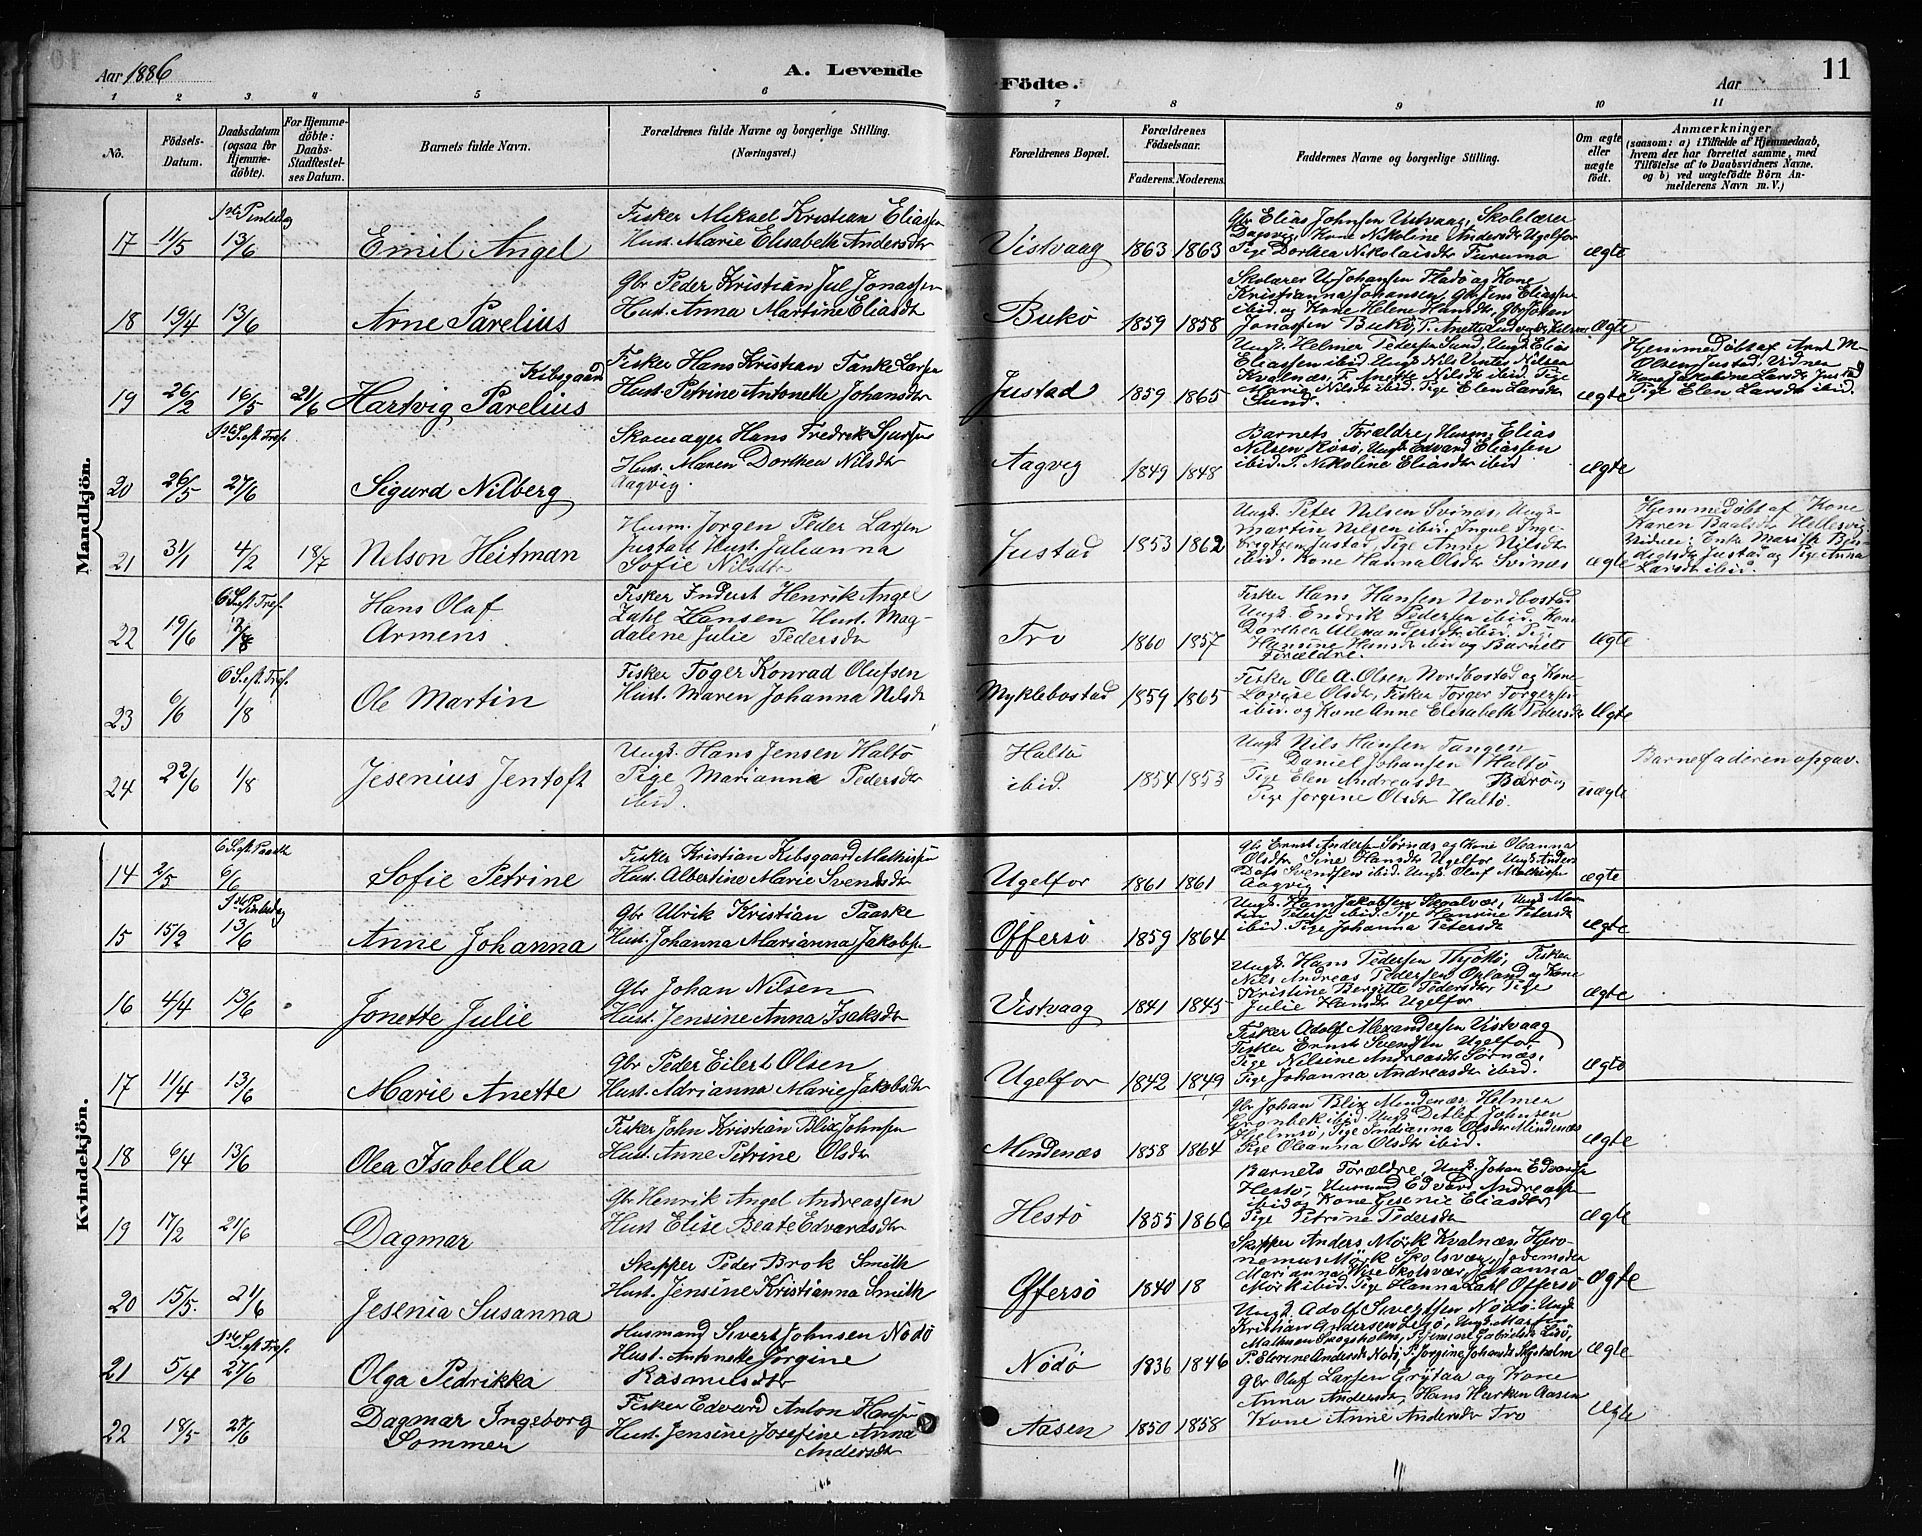 Aar 1886
A. Levende
Födte.
Aar
11
1 2 3 4 5 6 7 8 9 10 11
No.
Födsels-
Datum.
Daabsdatum
(ogsaa for
Hjemme-
döbte).
For Hjemme-
döbte:
Daabs-
Stadfæstel-
ses Datum.
Barnets fulde Navn.
Forældrenes fulde Navne og borgerlige Stilling.
(Næringsvei.)
Forældrenes Bopæl.
Forældrenes
Födselsaar.
Faderens. Moderens.
Faddernes Navne og borgerlige Stilling.
Om ægte
eller
uægte
født.
Anmærkninger
(saasom: a) i Tilfælde af Hjemmedaab,
hvem der har forrettet samme, med
Tilföielse af to Daabsvidners Navne.
og b) ved uægtefödte Börn An-
melderens Navn m. V.)
Mandkjön.
17 11/5 13/6 Emil Angel
Fisker Mikael Kristian Eliassen
Hust. Marie Elisabeth Andersdtr
Vistvaag 1863 1863
Gbr Elias Johnsen Vistvaag, Skolelærer
Dagsvig, Kone Nikoline Andersdtr Ugelfor
Pige Dorthea Nikolaisdtr Furumo
ægte
18 19/4 13/6 Arne Parelius
Gbr Peder Kristian Jul Jonassen
Hust. Anna Martine Eliasdtr
Bukö 1859 1858
Skolærer Johansen Fladö og Kone
Kristianna Johansen, Gbr Jens Eliassen
ibid. og Kone Helene Hansdtr, Gbr Johan
Jonassen Bukö, P. Anette
Ægte
19 26/2 16/5 21/6 Kibsgaard
Hartvig Parelius
Fisker Hans Kristian Tanke Larsen
Hust. Petrine Antonette Johansdtr
Justad 1859 1865
Ungk. Helmer Pedersen Sund, Ungk Elias
Eliassen ibid. Ungk Nils Nilsen
Kvalnæs, P. Anette Nilsdtr ibid. Pige
Maria Nilsdtr ibid. Pige Elen Larsdtr
Sund.
ægte
Hjemmedöbt af Arnt M
Olsen Justad, Vidner
Kone Jakobine Larsdtr Justad
Pige Elen Larsdtr ibid.
1ste S. eft. Tref.
20 26/5 27/6 Sigurd Nilberg
Skomager Hans Fredrik Sjursen
Hust. Maren Dorthea Nilsdtr
Aagvig.
Aagvig 1849 1848
Barnets Forældre, Husm. Elias
Nilsen Rösö, Ungk Edvard Eliassen
ibid. P. Nikoline Eliasdtr ibid
Ægte
21 31/1 4/2 18/7 Nelson Heitman
Husm. Jorgen Peder Larsen
Justad Hust. Julianna
Sofie Nilsdtr
Justad 1853 1862
Ungk. Peter Nilsen Svinæs, Ungk
Martin Nilsen ibid,
Justad, Pige Anne Nilsdtr
ibid. Kone Hanna Olsdtr Svinæs
ægte
Hjemmedöbt af Kone
Karen Hellesvig
Vidner: Enke Marith
Justad og Pige Anna
Larsdtr ibid.
6 S. eft Tref.
22 19/6 1/8 Hans Olaf
Armens
Fisker Indert Henrik Angel
Zahl Hansen Hust. Mag-
dalene Julie Pedersdtr
Tro 1860 1857
Fisker Hans Hansen Nordbostad
Ungk. Endrik Pedersen ibid. Kone
Dorthea Alexandersdtr ibid. Pige
Hansine Hansdtr ibid og Barnets
Forældre.
Ægte
6 S. eft. Tref.
23 6/6 1/8 Ole Martin
Fisker Toger Konrad Olufsen
Hust. Maren Johanna Nilsdtr
Myklebostad 1859 1865
Fisker Ole A. Olsen Nordbostad og Kone
Lovise Olsdtr, Fisker Torger Torgersen
ibid. og Kone Anne Elisabeth Pedersdtr
Ægte
24 22/6 1/8 Jesenius Jentoft
Ungk. Hans Jensen Haltö
Pige Marianna Pedersdtr
ibid.
Haltö
ibid. 1854 1853
Ungk Nils Hansen Tangen
Daniel Johansen Haltö
Pige Elen Andreasdtr Barö og
Pige Jorgine Olsdtr Haltö.
uægte
Barnefaderen opgav.
Kvindekjön.
14 2/5 6/6 Sofie Petrine
Fisker Kristian Kibsgaard Mathisen
Hust. Albertine Marie Svendsdtr
Ugelfor 1861 1861
Gbr Ernst Andersen Sörnæs og Kone Oleanna
Olsdtr Sine Hansdtr Ugelfor Ungk Anders
Dass Svendsen ibid. Ungk. Oluf Mathisen
Aagvig.
ægte
15 15/2 13/6 Anne Johanna
Gbr Ulrik Kristian Paaske
Hust. Johanna Marianna Jakobsen
Offersö 1859 1864
Ungk. Hans Jakobsen
Petersen ibid. Pige Hansine Petersdtr
ibid. Pige Johanna Petersdtr
ægte
16 4/4 13/6 Jonette Julie
Gbr Johan Nilsen
Hust. Jensine Anna Isaksdtr
Vistvaag 1841 1845
Ungk. Hans Pedersen Thjöttö, Fisker
Nils Andreas Pedersen Opland og Kone
Kristine Bergitte Pedersdtr Pige
Julie Hansdtr Ugelfor
ægte
17 11/4 13/6 Marie Anette
Gbr Peder Eilert Olsen
Hust. Adrianna Marie Jakobsdtr
Ugelfor 1842 1849
Fisker Adolf Alexandersen Vistvaag
Fisker Ernst Svendsen Ugelfor
Pige Nilsine Andreasdtr Sörnæs,
Pige Johanna Andreasdtr ibid.
ægte
18 6/4 13/6 Olea Isabella
Fisker John Kristian Blix Johnsen
Hust. Anne Petrine Olsdtr
Mindenæs 1858 1864
Gbr Johan Blix Mindenæs, Helmer
Grönbek ibid. Ungk Detlef Johnsen
Holmsö, Pige Indianna Olsdtr Mindenæs
Pige Oleanna Olsdtr ibid.
Ægte
19 17/2 21/6 Dagmar
Gbr Henrik Angel Andreassen
Hust Elise Beate Edvardsdtr
Hestö 1855 1866
Barnets Forældre, Ungk. Johan Edvardsen
Hestö, Husmand Edvard Andreassen
ibid og Kone Jesenie Eliasdtr
Pige Petrine Pedersdtr
Ægte
20 15/5 21/6 Jesenia Susanna
Skipper Peder Brok Smith
Hust. Jensine Kristianna Smith
Offersö 1840 18
Skipper Anders Mörk Kvalnæs, Hjero-
nemus Mörk Skolsvær, Jordemoder
Marianna Wise Skolsvær, Johanna
Mörk ibid. Pige Hanna Zahl Offersö
Ægte
1ste S. eft. Tref.
21 5/4 27/6 Olga Pedrikka
Husmand Sivert Johnsen Nödö
Hust. Antonette Jorgine
Rasmusdtr
Nödö 1836 1846
Ungk. Adolf Sivertsen Nödö, Ungk
Kristian Andersen Ungk. Martin
P. Elorine Andersdtr Nodö, P. Jorgine Johansdtr
Ægte
22 18/5 27/6 Dagmar Ingeborg
Sommer
Fisker Edvard Anton Hansen
Hust. Jensine Josefine Anna
Andersdtr
Aasen 1850 1858
Gbr Oluf Larsen Grytaa og Kone
Anna Andersdtr, Hans Harken Aasen
Kone Anne Andersdtr Tro
Ægte